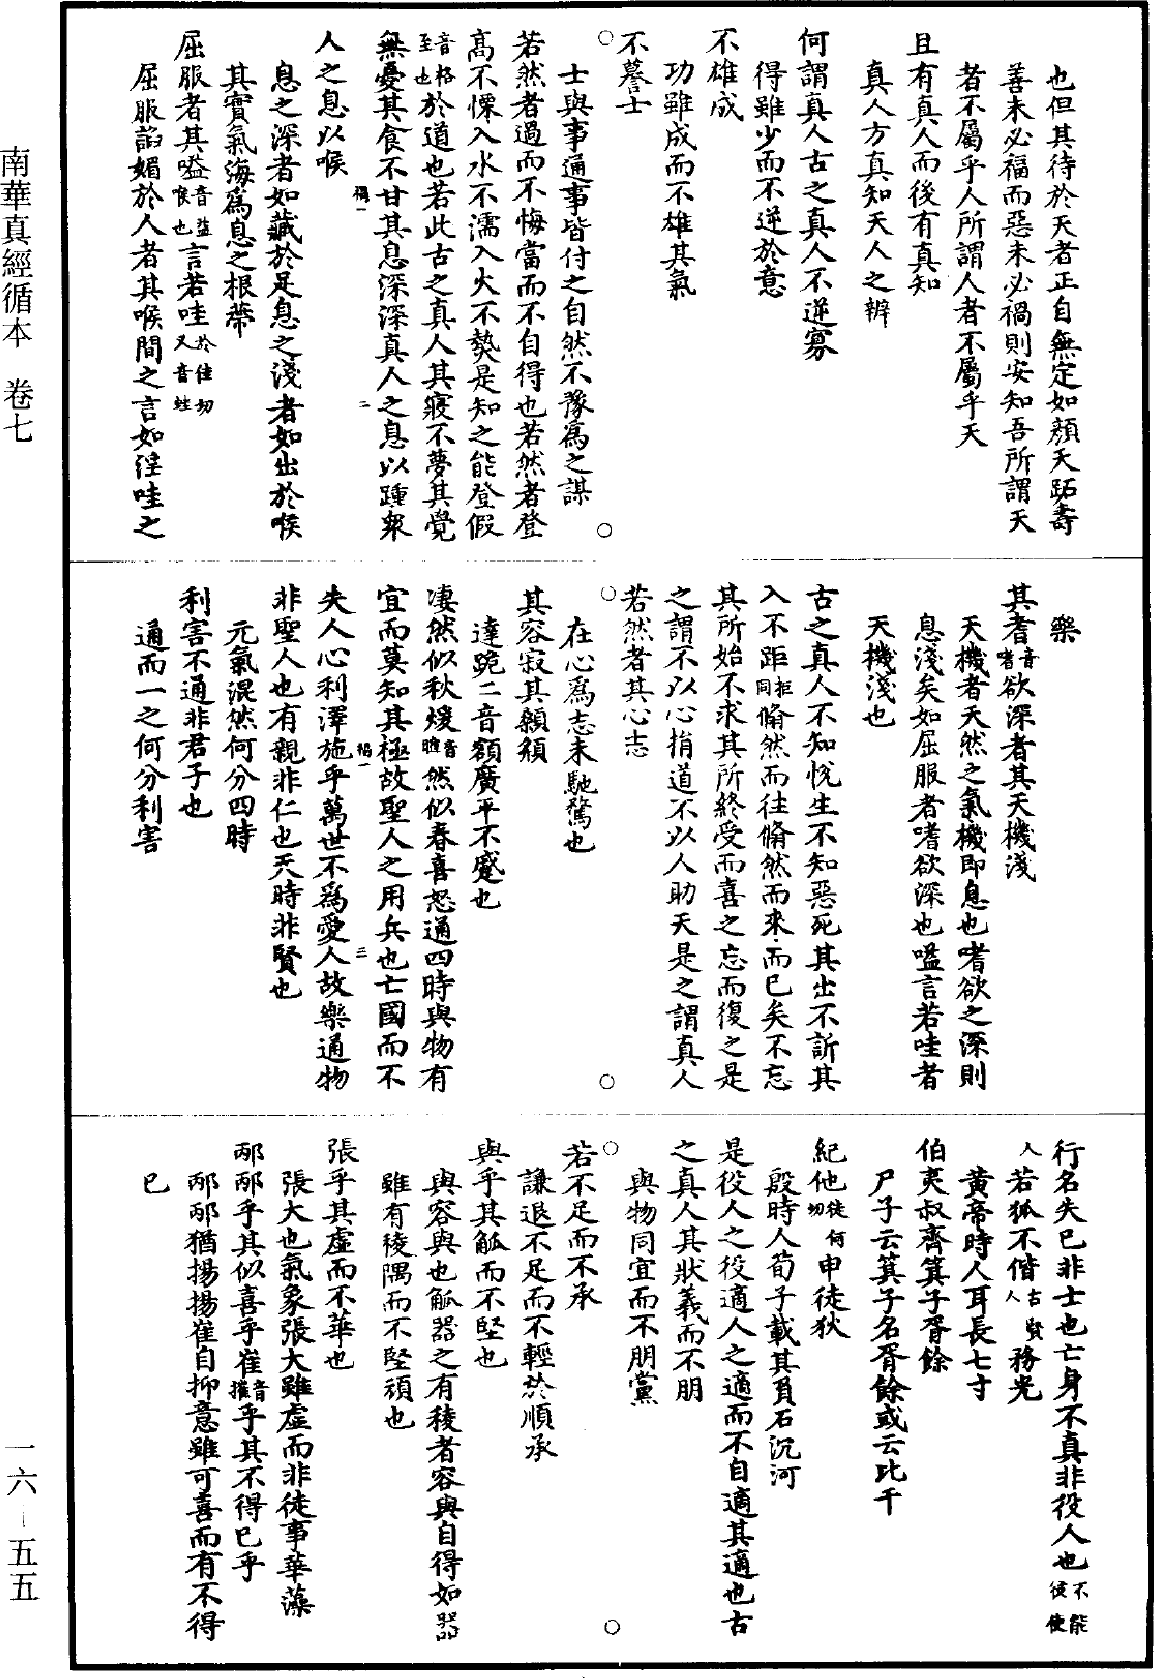 也但其待於天者正自無定如顏天跖壽
善未必福而惡未必禍則安知吾所謂天
者不屬乎人所謂人者不屬乎天
且有真人而後有真知
真人方真知天人之辨
何謂真人古之真人不逆寡
得雖少而不逆於意
不雄成
功雖成而不雄其氣
不謩士
士與事通事皆付之自然不豫為之謀
若然者過而不悔當而不自得也若然者登
高不慄入水不濡入火不熱是知之能登假
音格至也於道也若此古之真人其寢不夢其覺
無憂其食不甘其息深深真人之息以踵衆
人之息以喉
息之深者如藏於足息之淺者如出於喉
其實氣海為息之根蔕
屈服者其嗌音益喉也言若哇於佳切又音蛙
屈服諂媚於人者其喉間之言如淫哇之
樂
其耆音嗜欲深者其天機淺
天機者天然之氣機即息也嗜欲之深則
息淺矣如屈服者嗜欲深也嗌言若哇者
天機淺也
古之真人不知悅生不知惡死其出不訢其
入不距拒同翛然而往翛然而來而已矣不忘
其所始不求其所終受而喜之忘而復之是
之謂不以心捐道不以人助天是之謂真人
若然者其心志
在心為志未馳騖也
其容寂其顙頯
達跪二音額廣平不蹙也
凄然似秋煖音暄然似春喜怒通四時與物有
宜而莫知其極故聖人之用兵也亡國而不
失人心利澤施乎萬世不為愛人故樂通物
非聖人也有親非仁也天時非賢也
元氣混然何分四時
利害不通非君子也
通而一之何分利害
行名失已非士也亡身不真非役人也不能役使
人若狐不偕古賢人務光
黄帝時人耳長七寸
伯夷叔齊箕子胥餘
尸子云箕子名胥餘或云比干
紀他徒何切申徒狄
殷時人荀子載其負石沉河
是役人之役適人之適而不自適其適也古
之真人其狀義而不朋
與物同宜而不朋黨
若不足而不承
謙退不足而不輕於順承
與乎其觚而不堅也
與容與也觚器之有稜者容與自得如器
雖有稜隅而不堅頑也
張乎其虛而不華也
張大也氣象張大雖虛而非徒事華藻
邴邴乎其似喜乎崔音摧乎其不得已乎
邴邴猶揚揚崔自抑意雖可喜而有不得
已
南華真經循本　卷七
一六―五五